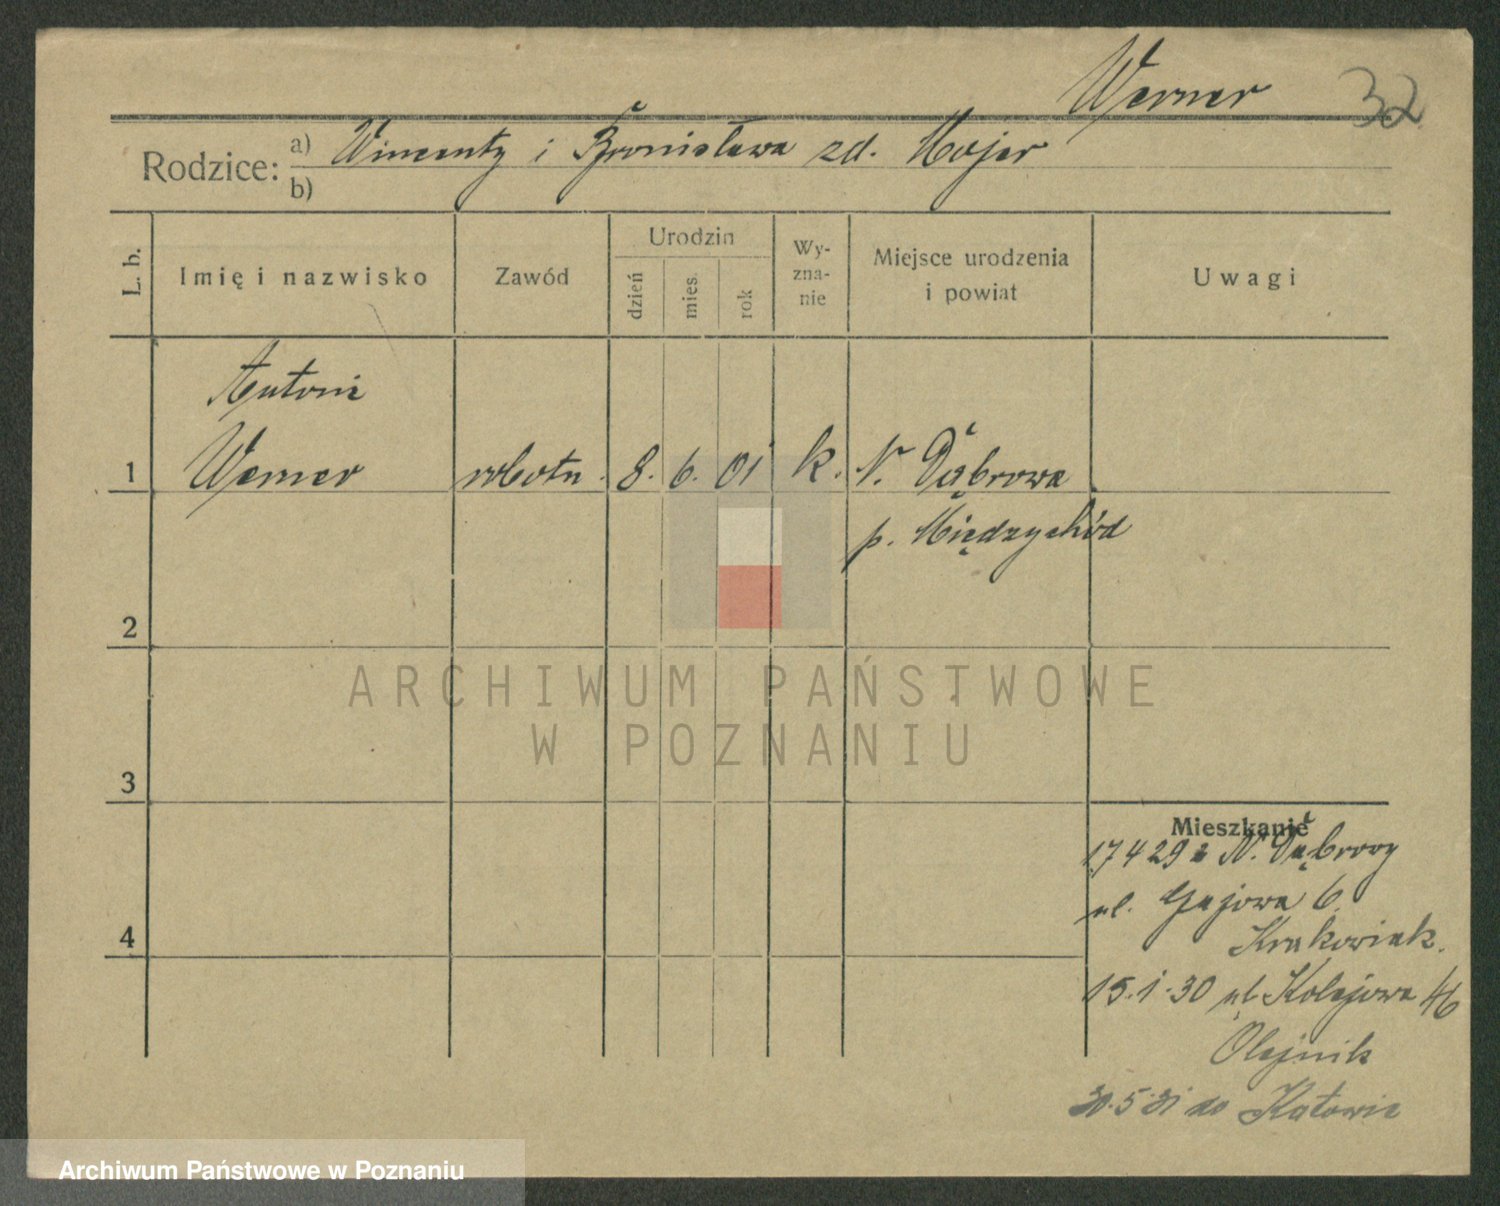 Werner 32
Rodzice: a) Wincenty i Bronisława zd. Majer
b)
L. b.
Imię i nazwisko
Zawód
Urodzin
dzień
mies.
rok
Wy-
zna-
nie
Miejsce urodzenia
i powiat
Uwagi
Antoni
1 Werner robotn. 8. 6. 01 k. N. Dąbrowa
p. Międzychód
2
3
4
ARCHIWUM PAŃSTWOWE
W POZNANIU
Mieszkanie
17 4 29 z N. Dąbrowy
ul. Gajowa 6.
Krakowiak.
15.1.30 ul. Kolejowa 46
Olejnik
30.5.31 do Katowic
Archiwum Państwowe w Poznaniu